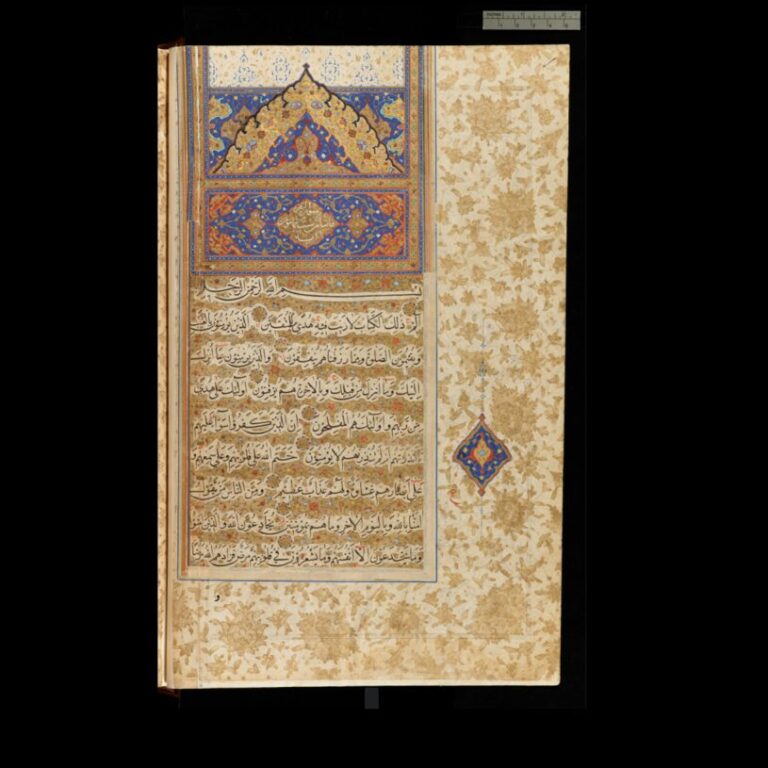 بسم الله الرحمن الرحيم
الم ذلك الكتاب لا ريب فيه هدى للمتقين الذين يؤمنون بالغيب
ويقيمون الصلوة ومما رزقناهم ينفقون والذين يؤمنون بما انزل
اليك وما انزل من قبلك وبالاخرة هم يوقنون اولئك على هدى
من ربهم واولئك هم المفلحون ان الذين كفروا سواء عليهم
ءانذرتهم ام لم تنذرهم لا يؤمنون ختم الله على قلوبهم وعلى سمعهم و
على ابصارهم غشاوة ولهم عذاب عظيم ومن الناس من يقول
امنا بالله وباليوم الاخر وما هم بمؤمنين يخادعون الله والذين امنوا
وما يخدعون الا انفسهم وما يشعرون في قلوبهم مرض فزادهم الله مرضا
و